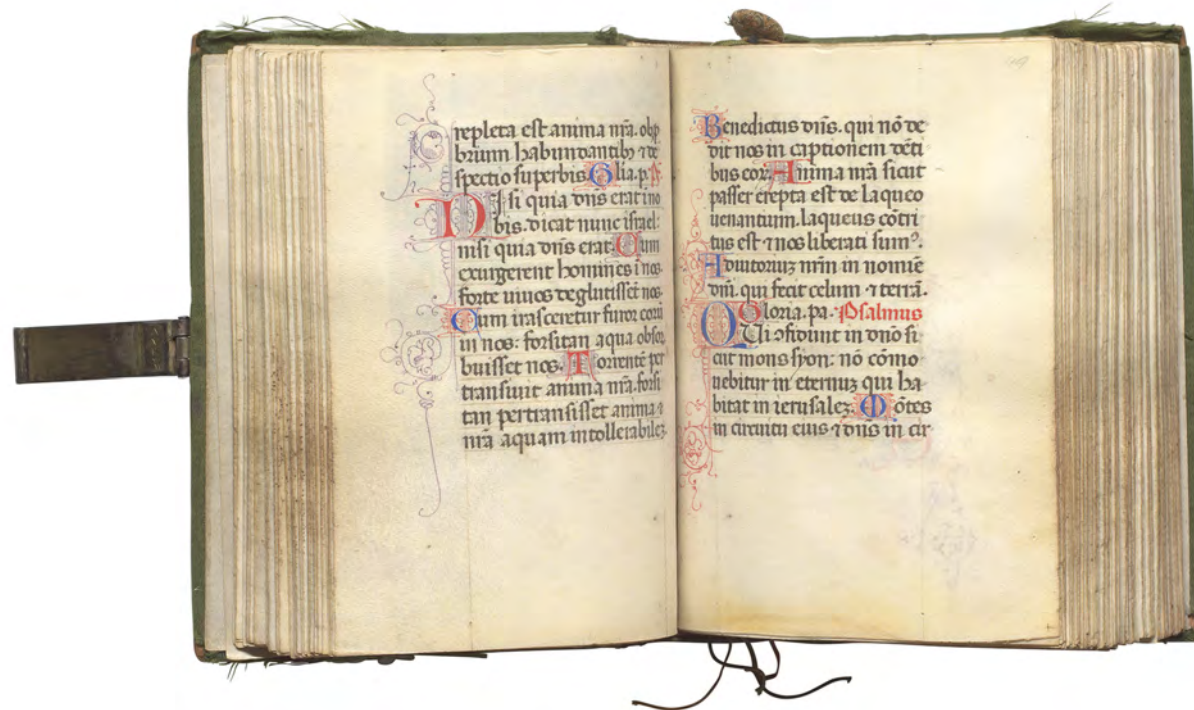 repleta est anima nr̃a. obp
brium habundantibꝫ ⁊ de
spectio superbis. Glia. p. A
NIsi quia dn̄s erat ī no
bis. dicat nunc israel:
nisi quia dn̄s erat. Cum
exurgerent homines ī nos.
forte uiuos deglutisset nos.
Cum irasceretur furor eorū
in nos: forsitan aqua obsor
buisset nos. Torrentē per
transiuit anima nr̃a. forsi
tan pertransisset anima ⁊
nr̃a aquam intollerabilez
Benedictus dn̄s. qui nō de
dit nos in captionem dēti
bus eor. Anima nr̃a sicut
passer erepta est de laqueo
uenantium. laqueus cōtri
tus est ⁊ nos liberati sumꝰ.
Adiutoriuꝫ nr̃m in nomīe
dn̄i. qui fecit celum ⁊ terrā.
Gloria. pa. Psalmus
QUi ꝯfidunt in dn̄o si
cut mons syon: nō cōmo
uebitur in eternuꝫ qui ha
bitat in ierusalez. Mōtes
in circuitu eius ⁊ dn̄s in cir